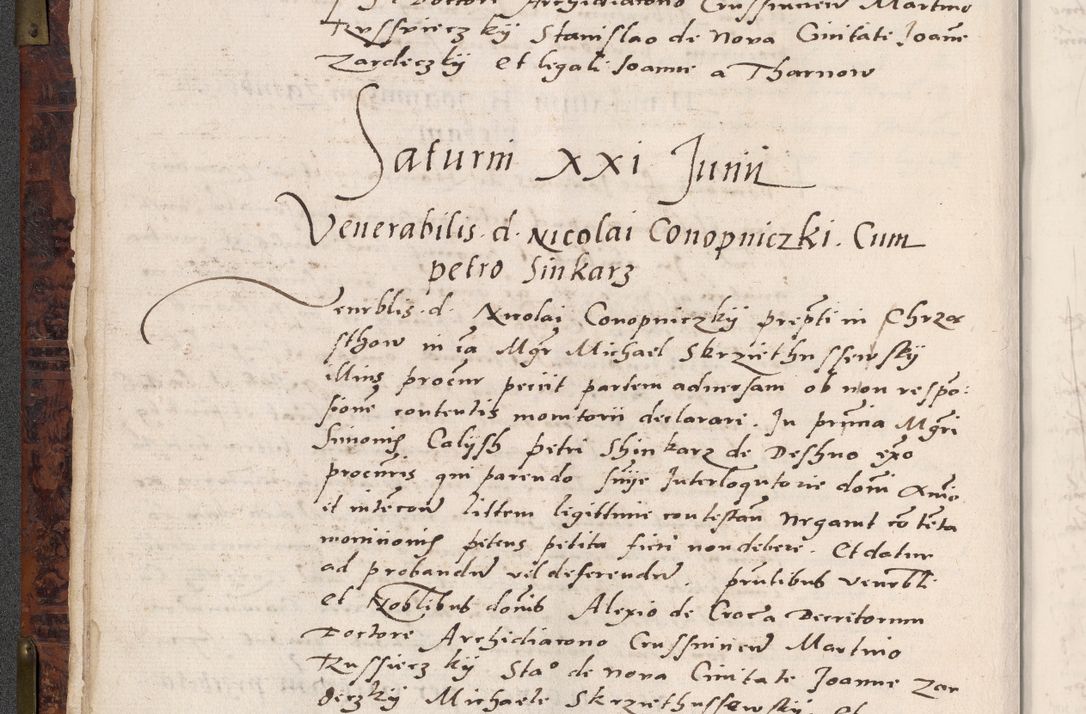 Doctore Archidiacono Crussvicien Martino
Russieczkÿ Stanislao de Nova Civitate Joañe
Zardeczkÿ et legali Joanne a Tharnow
Saturni XXI Junii
Venerabilis d. Nicolai Conopniczki. Cum
petro Sinkarz
Venrblis d. Nicolai Conopniczkÿ prepti in Chrzą
sthow in ca Mgr Michael Skrziethussewskÿ
illius procur petiit partem adversam ob non respo:
sione contentis monitorii declarari. In pntia Mgri
Simonis Calÿsh petri Shinkarz de Deshno expo
procuris qui parendo snÿe Interloqutorie domi
et intecow littem legittime contestan Negavit coteta
monitionis petens petita fieri non debere. Et datur
ad probandu vel deferendu. pntibus venrbli
et Noblibus domis Alexio de Croca Decretorum
Doctore Archidiacono Crussvicien Martino
Russieczkÿ Sta° de Nova Civitate Joanne Zar
deczkÿ Michaele Skrziethussewskÿ. Et